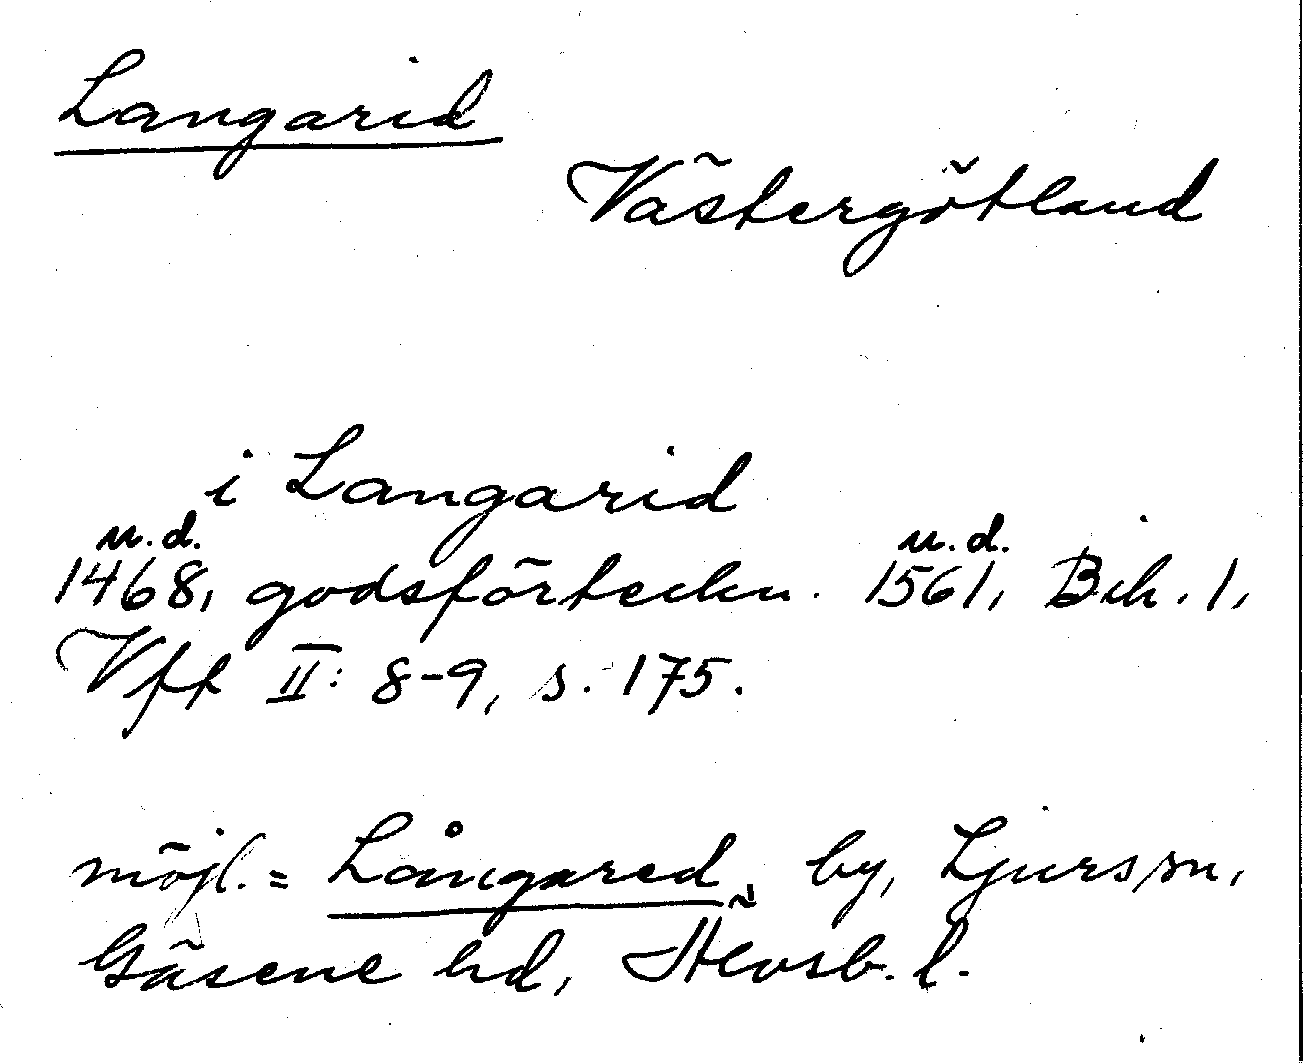 Langarid
Västergötland
i Langarid
u.d. u.d.
1468, godsförteckn. 1561, Bih. 1,
Vff II: 8-9, s. 175.
möjl. = Långared, by, Ljurs sn,
Gäsene hd, Älvsb. l.